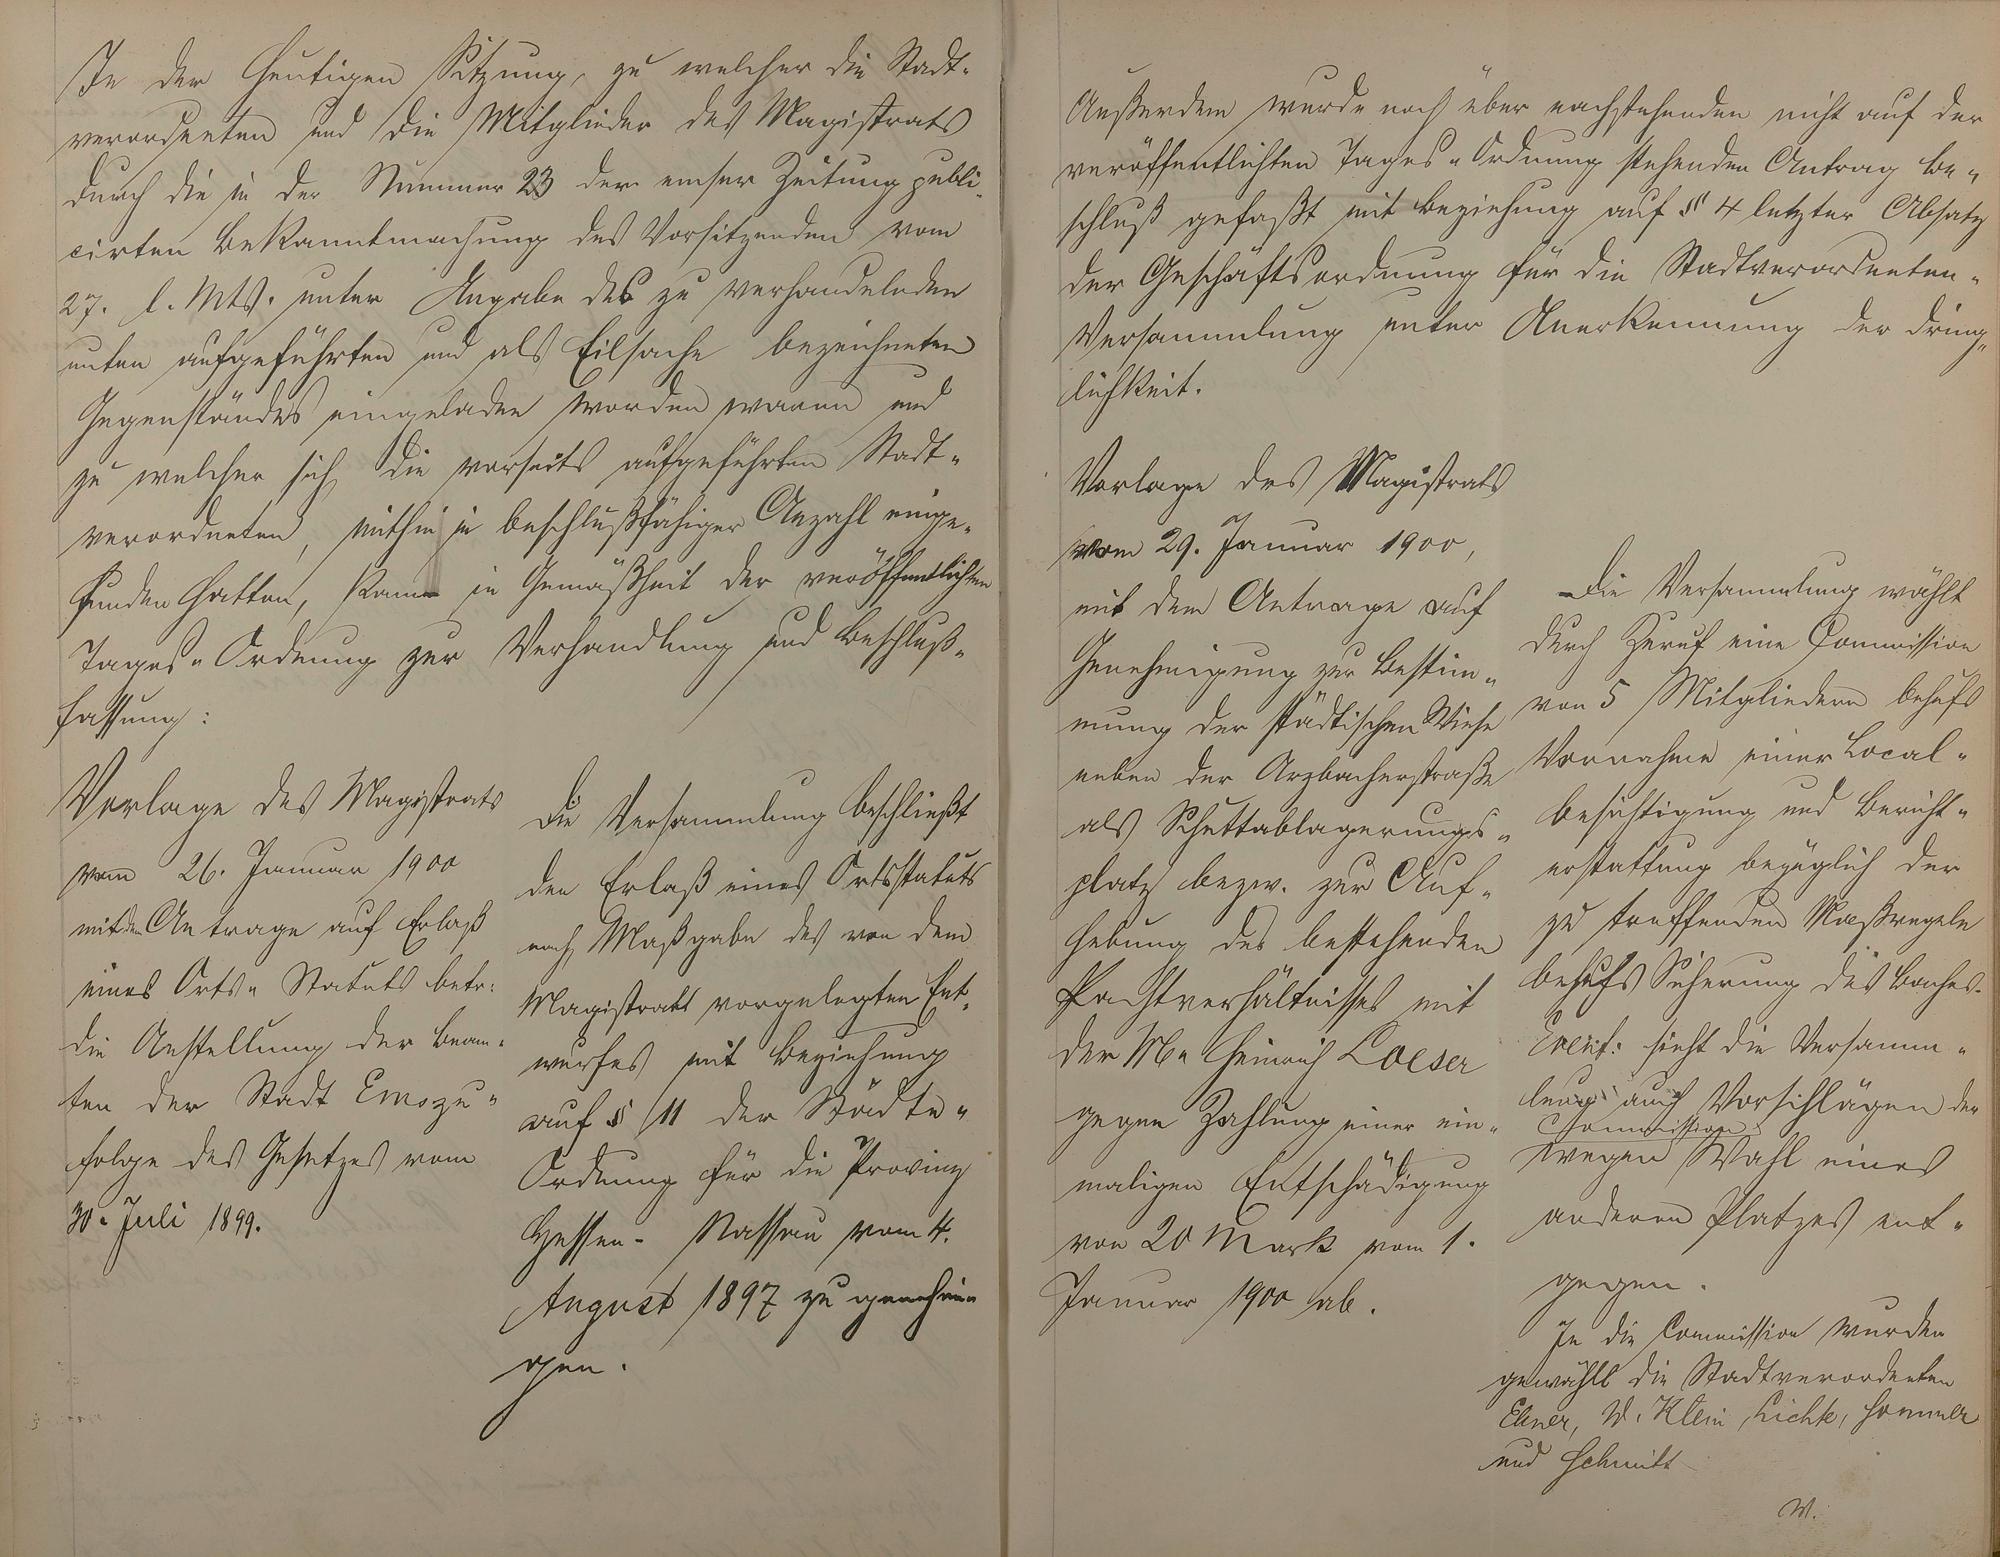 In der heutigen Sitzung, zu welcher die Stadt-
verordneten und die Mitglieder des Magistrats
durch die in der Nummer 23 der emser Zeitung publi-
cirten Bekanntmachung des Vorsitzenden vom
27. l. Mts. unter Angabe des zu verhandelnden
unten aufgeführten und als Eilsache bezeichneten
Gegenstandes eingeladen worden waren und
zu welcher sich die vorseits aufgeführten Stadt-
verordneten, mithin in beschlußfähiger Anzahl einge-
funden hatten, kam in Gemäßheit der veröffentlichten
Tages-Ordnung zur Verhandlung und Beschluß-
fassung:
Vorlage des Magistrats
vom 26. Januar 1900
mit dem Antrage auf Erlaß
eines Orts-Statuts betr:
die Anstellung der Beam-
ten der Stadt Ems zu-
folge des Gesetzes vom
30. Juli 1899.
Die Versammlung beschließt
den Erlaß eines Ortsstatuts
nach Maßgabe des von dem
Magistrat vorgelegten Ent-
wurfes mit Beziehung
auf § 11 der Städte-
Ordnung für die Provinz
Hessen-Nassau vom 4.
August 1897 zu genehmi-
gen.
Außerdem wurde noch über nachstehenden nicht auf der
veröffentlichten Tages-Ordnung stehenden Antrag Be-
schluß gefaßt mit Beziehung auf § 4 letzter Absatz
der Geschäftsordnung für die Stadtverordneten-
Versammlung unter Anerkennung der Dring-
lichkeit.
Vorlage des Magistrats
vom 29. Januar 1900,
mit dem Antrage auf
Genehmigung zur Bestim-
mung der städtischen Wiese
neben der Arzbacherstraße
als Schuttablagerungs-
platz bezw. zur Auf-
hebung des bestehenden
Pachtverhältnisses mit
der Heinrich Loeser
gegen Zahlung einer ein-
maligen Entschädigung
von 20 Mark vom 1.
Januar 1900 ab.
Die Versammlung wählt
durch Zuruf eine Commission
von 5 Mitgliedern behufs
Vornahme einer Local-
besichtigung und Bericht-
erstattung bezüglich der
zu treffenden Maßregeln
behufs Sicherung des Baches.
Event: sieht die Versamm-
lung auch Vorschlägen der
Commission
wegen Wahl eines
anderen Platzes ent-
gegen.
In die Commission wurden
gewählt die Stadtverordneten
Ebner, W. Klein, Lichte, Sommer
und Schmitt
W.